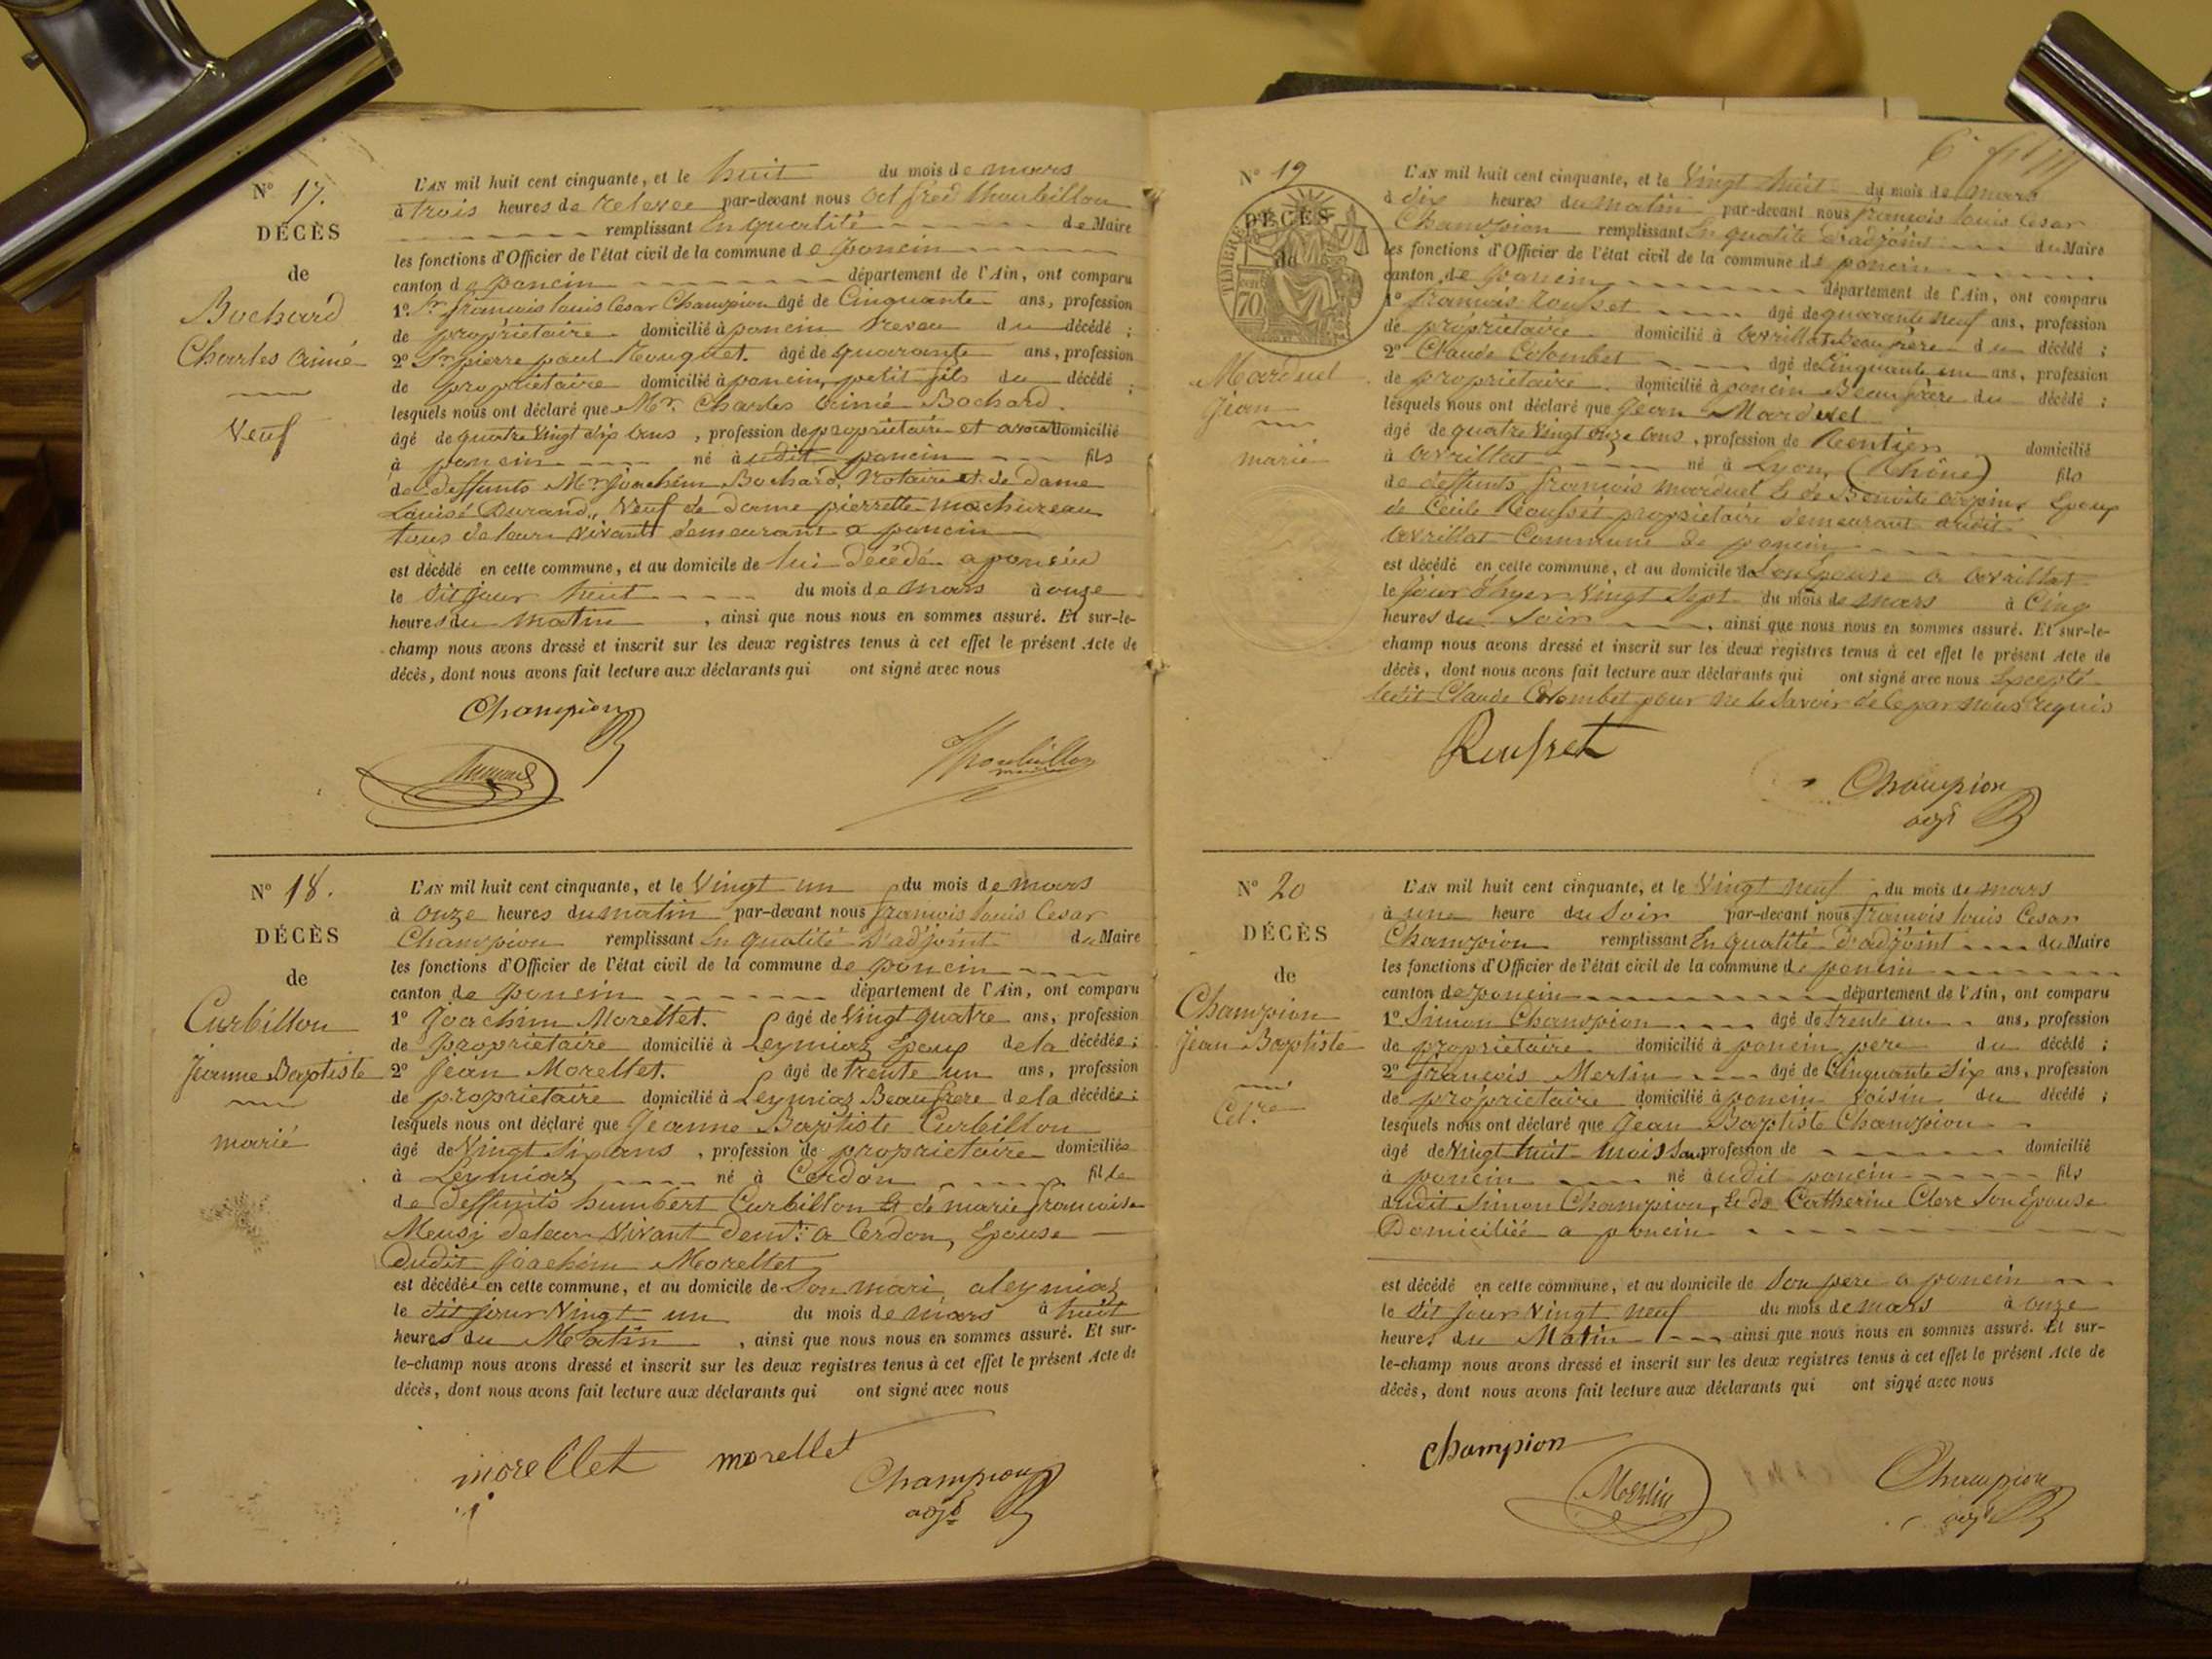 N° 17.
DÉCÈS
de
Bochard
Charles Aimé
Veuf
L'AN mil huit cent cinquante, et le huit du mois de mars
à trois heures de relevée par-devant nous
remplissant En qualité de Maire
les fonctions d'Officier de l'état civil de la commune de poncin
canton de poncin département de l'Ain, ont comparu
1° Sr. françois louis Cesar Champion âgé de Cinquante ans, profession
de propriétaire domicilié à poncin neveu du décédé ;
2° Sr pierre paul âgé de quarante ans, profession
de propriétaire domicilié à poncin, petit fils du décédé ;
lesquels nous ont déclaré que Mr. Charles Aimé Bochard
âgé de quatre Vingt dix ans , profession de propriétaire et avocat domicilié
à poncin né audit poncin fils
de deffunts Mr Joachim Bochard, Notaire et de dame
Louise Durand, Veuf de Dame pierrette machureau
tous de leur Vivant demeurant a poncin
est décédé en cette commune, et au domicile de lui décédé a poncin
le dit jour huit du mois de mars à onze
heures du matin , ainsi que nous nous en sommes assuré. Et sur-le-
champ nous avons dressé et inscrit sur les deux registres tenus à cet effet le présent Acte de
décès, dont nous avons fait lecture aux déclarants qui ont signé avec nous
Champion
N° 18.
DÉCÈS
de
Curbillon
Jeanne Baptiste
marié
L'AN mil huit cent cinquante, et le Vingt un du mois de mars
à onze heures du matin par-devant nous françois louis Cesar
Champion remplissant En qualité D'adjoint du Maire
les fonctions d'Officier de l'état civil de la commune de poncin
canton de poncin département de l'Ain, ont comparu
1° Joachim Morellet. âgé de Vingt quatre ans, profession
de propriétaire domicilié à Leymiaz Epoux de la décédée ;
2° Jean Morellet. âgé de trente un ans, profession
de propriétaire domicilié à Leymiaz Beaufrere de la décédée ;
lesquels nous ont déclaré que Jeanne Baptiste Curbillon
âgé de Vingt Six ans , profession de proprietaire domiciliée
à Leymiaz né à Cerdon fille
de Deffunts humbert Curbillon Et de marie françoise
de leur Vivant demt. a Cerdon, Epouse
dudit Joachim Morellet
est décédée en cette commune, et au domicile de Son mari aleymiaz
le dit jour Vingt un du mois de mars à huit
heures du Matin , ainsi que nous nous en sommes assuré. Et sur-
le-champ nous avons dressé et inscrit sur les deux registres tenus à cet effet le présent Acte de
décès, dont nous avons fait lecture aux déclarants qui ont signé avec nous
morellet morellet
Champion
adjt
N° 19
DÉCÈS
de
TIMBRE
70
Marduel
Jean
marié
L'AN mil huit cent cinquante, et le Vingt huit du mois de mars
à dix heures du matin par-devant nous françois louis Cesar
Champion remplissant En qualité d'adjoint du Maire
les fonctions d'Officier de l'état civil de la commune de poncin
canton de poncin département de l'Ain, ont comparu
1° françois Rousset âgé de quarante neuf ans, profession
de propriétaire domicilié à avrillat beaufrère du décédé ;
2° Claude Colombet âgé de Cinquante un ans, profession
de proprietaire domicilié à poncin Beaufrère du décédé ;
lesquels nous ont déclaré que Jean Marduel
âgé de quatre Vingt onze ans , profession de Rentier domicilié
à avrillat né à Lyon, (Rhône) fils
de deffunts françois marduel Et de Benoite Epoux
de Cécile Rousset propriétaire demeurant audit
avrillat Commune de poncin
est décédé en cette commune, et au domicile de Son Epouse a avrillat
le jour d'hyer Vingt Sept du mois de mars à Cinq
heures du Soir , ainsi que nous nous en sommes assuré. Et sur-le-
champ nous avons dressé et inscrit sur les deux registres tenus à cet effet le présent Acte de
décès, dont nous avons fait lecture aux déclarants qui ont signé avec nous Excepté
ledit Claude Colombet pour ne le Savoir de Ce par nous requis
Rousset
Champion
adjt
N° 20
DÉCÈS
de
Champion
Jean Baptiste
Cel.re
L'AN mil huit cent cinquante, et le Vingt neuf du mois de mars
à une heure du Soir par-devant nous françois louis Cesar
Champion remplissant En qualité d'adjoint du Maire
les fonctions d'Officier de l'état civil de la commune de poncin
canton de poncin département de l'Ain, ont comparu
1° Simon Champion âgé de trente un ans, profession
de proprietaire domicilié à poncin pere du décédé ;
2° françois Merlin âgé de Cinquante Six ans, profession
de propriétaire domicilié à poncin Voisin du décédé ;
lesquels nous ont déclaré que Jean Baptiste Champion
âgé de Vingt huit mois San profession de domicilié
à poncin né audit poncin fils
dudit Simon Champion, Et de Catherine Clerc Son Epouse
Domiciliée a poncin
est décédé en cette commune, et au domicile de Son pere a poncin
le dit jour Vingt neuf du mois de mars à onze
heures du Matin ainsi que nous nous en sommes assuré. Et sur-
le-champ nous avons dressé et inscrit sur les deux registres tenus à cet effet le présent Acte de
décès, dont nous avons fait lecture aux déclarants qui ont signé avec nous
Champion
Merlin
Champion
adjt